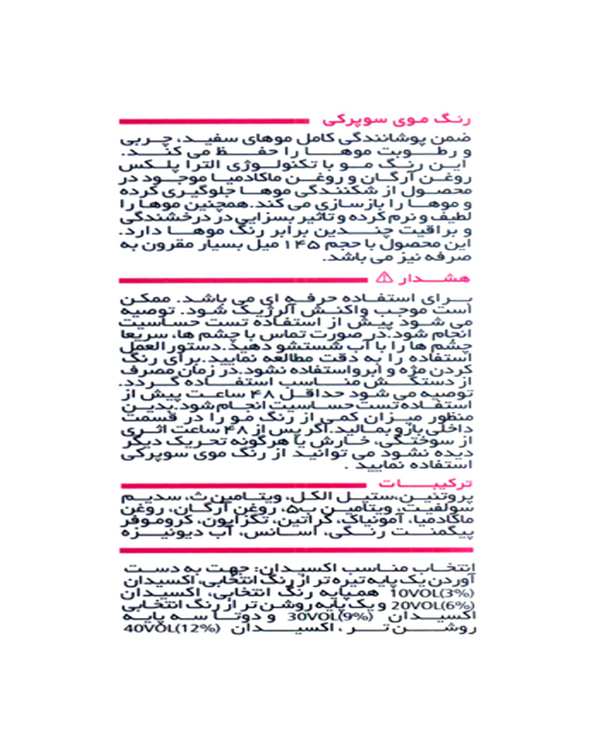 رنگ موی سوپرکی
ضمن پوشانندگی کامل موهای سفید، چربی
و رطوبت موها را حفظ می کند.
این رنگ مو با تکنولوژی الترا پلکس
روغن آرگان و روغن ماکادمیا موجود در
محصول از شکنندگی موها جلوگیری کرده
و موها را بازسازی می کند. همچنین موها را
لطیف و نرم کرده و تاثیر بسزایی در درخشندگی
و براقیت چندین برابر رنگ موها دارد.
این محصول با حجم ۱۴۵ میل بسیار مقرون به
صرفه نیز می باشد.
هشدار
برای استفاده حرفه ای می باشد. ممکن
است موجب واکنش آلرژیک شود. توصیه
می شود پیش از استفاده تست حساسیت
انجام شود. در صورت تماس با چشم ها، سریعا
چشم ها را با آب شستشو دهید. دستورالعمل
استفاده را به دقت مطالعه نمایید. برای رنگ
کردن مژه و ابرو استفاده نشود. در زمان مصرف
از دستکش مناسب استفاده گردد.
توصیه می شود حداقل ۴۸ ساعت پیش از
استفاده تست حساسیت انجام شود. بدین
منظور میزان کمی از رنگ مو را در قسمت
داخلی بازو بمالید. اگر پس از ۴۸ ساعت اثری
از سوختگی، خارش یا هرگونه تحریک دیگر
دیده نشود می توانید از رنگ موی سوپرکی
استفاده نمایید .
ترکیبات
پروتئین، ستیل الکل، ویتامین ث، سدیم
سولفیت، ویتامین ب۵، روغن آرگان، روغن
ماکادمیا، آمونیاک، کراتین، تگزاپون، کروموفر
پیگمنت رنگی، اسانس، آب دیونیزه
انتخاب مناسب اکسیدان: جهت به دست
آوردن یک پایه تیره تر از رنگ انتخابی، اکسیدان
10VOL(3%) همپایه رنگ انتخابی، اکسیدان
20VOL(6%) و یک پایه روشن تر از رنگ انتخابی
اکسیدان 30VOL(9%) و دو تا سه پایه
روشن تر ، اکسیدان 40VOL(12%)